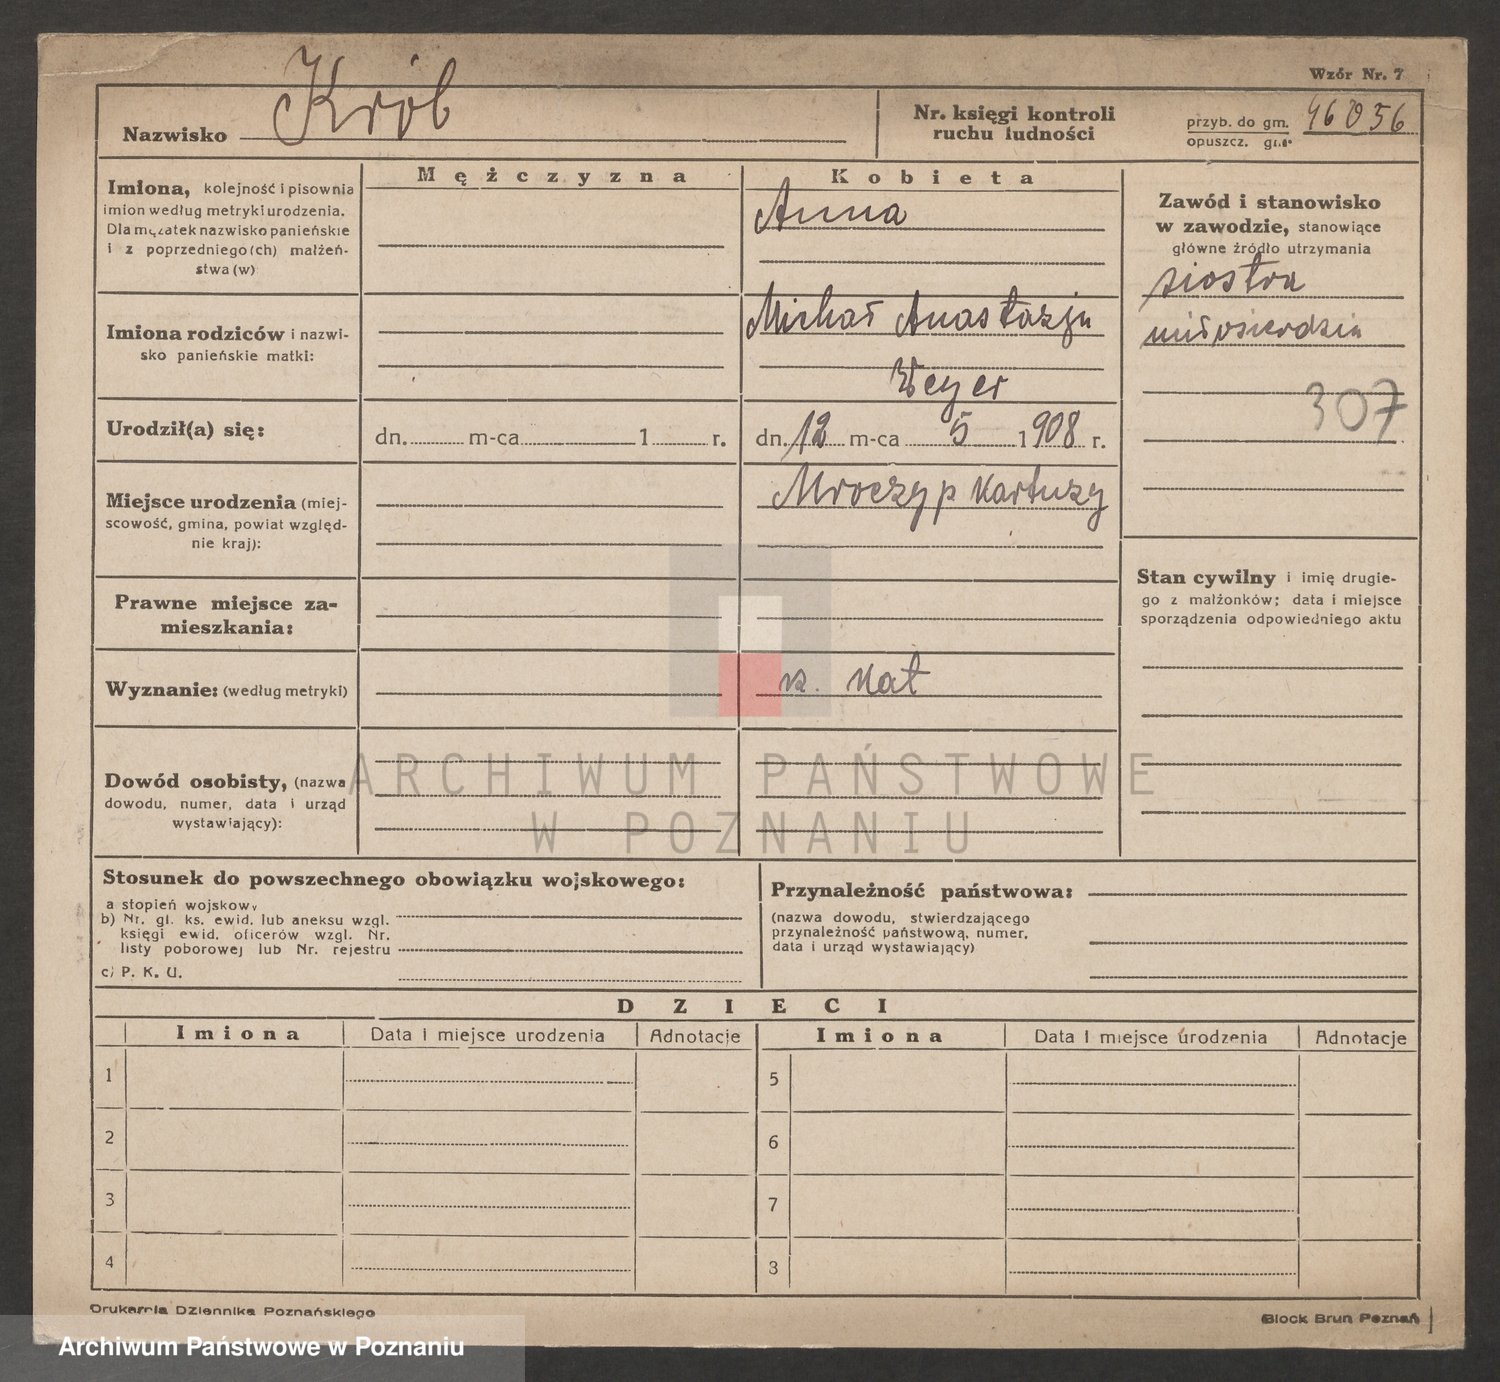 Wzór Nr. 7
Nazwisko Król
Nr. księgi kontroli
ruchu ludności
przyb. do gm. 46056
opuszcz. gm.
Imiona, kolejność i pisownia
imion według metryki urodzenia.
Dla mężatek nazwisko panieńskie
i z poprzedniego(ch) małżeń-
stwa (w)
Mężczyzna
Kobieta
Anna
Zawód i stanowisko
w zawodzie, stanowiące
główne źródło utrzymania
siostra
miłosierdzia
307
Imiona rodziców i nazwi-
sko panieńskie matki:
Michał Anastazja
Weyer
Urodził(a) się:
dn. m-ca 1 r.
dn. 12 m-ca 5 1908 r.
Miejsce urodzenia (miej-
scowość, gmina, powiat względ-
nie kraj):
Mroczy p Kartuzy
Stan cywilny i imię drugie-
go z małżonków; data i miejsce
sporządzenia odpowiedniego aktu
Prawne miejsce za-
mieszkania:
Wyznanie: (według metryki)
rz. kat
Dowód osobisty, (nazwa
dowodu, numer, data i urząd
wystawiający):
ARCHIWUM PAŃSTWOWE
W POZNANIU
Stosunek do powszechnego obowiązku wojskowego:
a stopień wojskowy
b) Nr. gl. ks. ewid. lub aneksu wzgl.
księgi ewid. oficerów wzgl. Nr.
listy poborowej lub Nr. rejestru
c) P. K. U.
Przynależność państwowa:
(nazwa dowodu, stwierdzającego
przynależność państwową, numer,
data i urząd wystawiający)
DZIECI
Imiona Data i miejsce urodzenia Adnotacje Imiona Data i miejsce urodzenia Adnotacje
1 5
2 6
3 7
4 3
Drukarnia Dziennika Poznańskiego
Block Brun Poznań
Archiwum Państwowe w Poznaniu